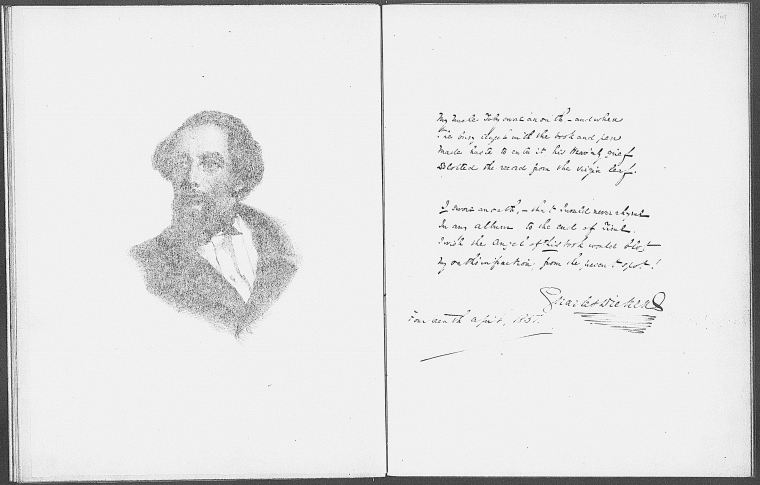 My Uncle Toby swore an oath – and when
The angel with the book and pen
Made haste to enter it his Heav'nly grief
Blotted the record from the virgin leaf.
I swore an oath, – that I would never rhyme
In any album to the end of Time.
I wish the Angel of this book would blot
My oath's infraction from the present spot!
Charles Dickens
Fourteenth April,